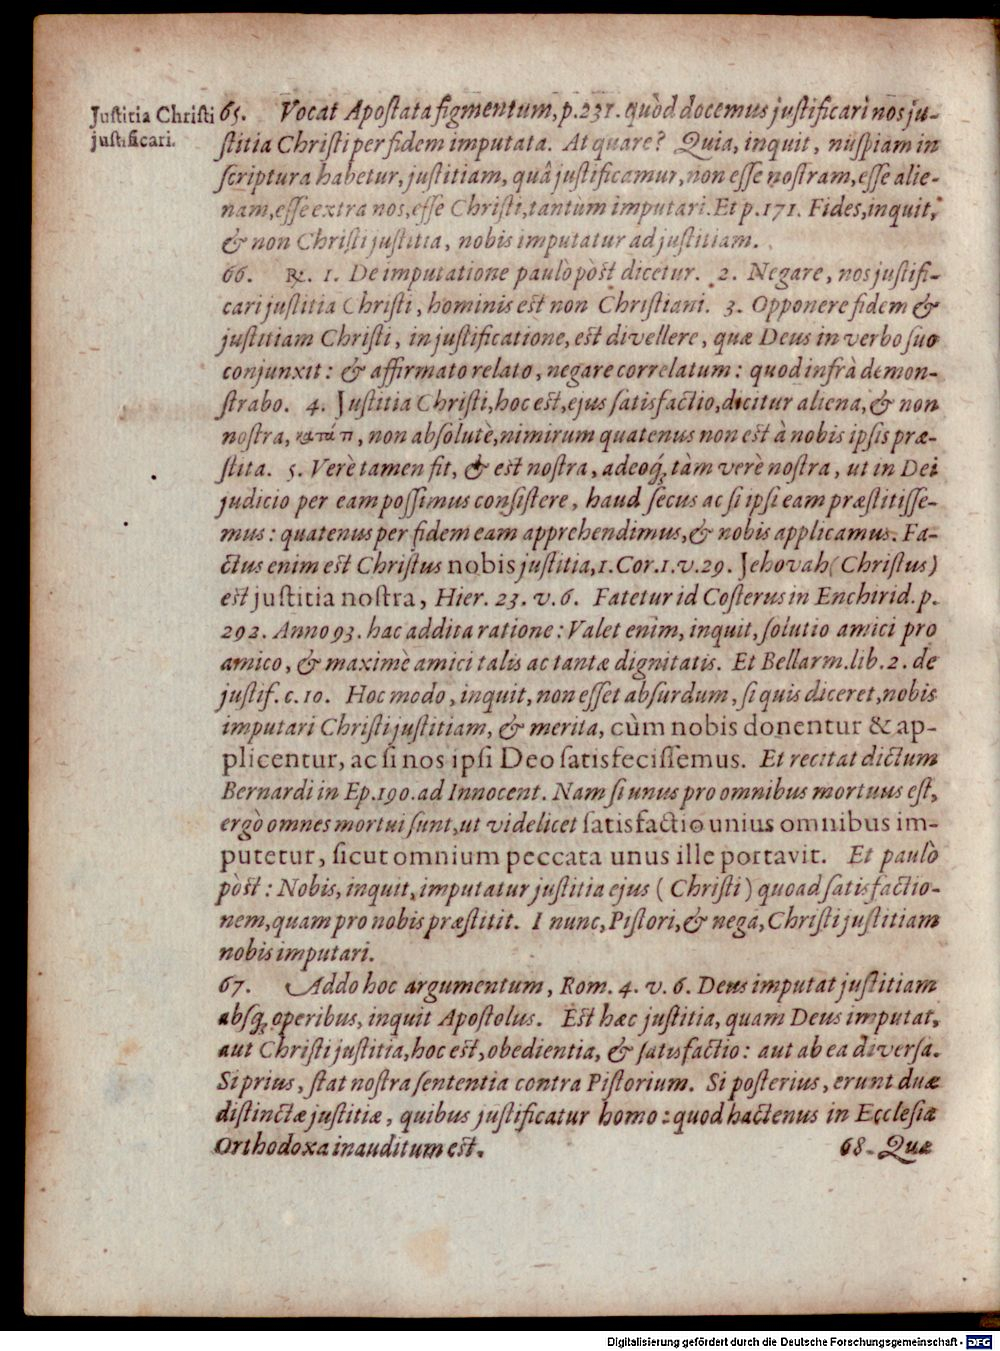 Justitia Christi
justificari.
65. Vocat Apostata figmentum, p.231. quòd docemus justificari nos ju-
stitia Christi per fidem imputata. At quare? Quia, inquit, nuspiam in
scriptura habetur, justitiam, quâ justificamur, non esse nostram, esse alie-
nam, esse extra nos, esse Christi, tantùm imputari. Et p.171. Fides, inquit,
& non Christi justitia, nobis imputatur ad justitiam.
66. ℞. 1. De imputatione paulò pòst dicetur. 2. Negare, nos justifi-
cari justitia Christi, hominis est non Christiani. 3. Opponere fidem &
justitiam Christi, in justificatione, est divellere, quæ Deus in verbo suo
conjunxit: & affirmato relato, negare correlatum: quod infrà demon-
strabo. 4. Justitia Christi, hoc est, ejus satisfactio, dicitur aliena, & non
nostra, κατά τι, non absolutè, nimirum quatenus non est à nobis ipsis præ-
stita. 5. Verè tamen fit, & est nostra, adeoq́; tàm verè nostra, ut in Dei
judicio per eam possimus consistere, haud secus ac si ipsi eam præstitisse-
mus: quatenus per fidem eam apprehendimus, & nobis applicamus. Fa-
ctus enim est Christus nobis justitia, 1. Cor. 1. v. 29. Jehovah (Christus)
est justitia nostra, Hier. 23. v. 6. Fatetur id Costerus in Enchirid. p.
292. Anno 93. hac addita ratione: Valet enim, inquit, solutio amici pro
amico, & maximè amici talis ac tantæ dignitatis. Et Bellarm. lib. 2. de
justif. c. 10. Hoc modo, inquit, non esset absurdum, si quis diceret, nobis
imputari Christi justitiam, & merita, cùm nobis donentur & ap-
plicentur, ac si nos ipsi Deo satisfecissemus. Et recitat dictum
Bernardi in Ep. 190. ad Innocent. Nam si unus pro omnibus mortuus est,
ergò omnes mortui sunt, ut videlicet satisfactio unius omnibus im-
putetur, sicut omnium peccata unus ille portavit. Et paulò
pòst: Nobis, inquit, imputatur justitia ejus (Christi) quoad satisfactio-
nem, quam pro nobis præstitit. I nunc, Pistori, & nega, Christi justitiam
nobis imputari.
67. Addo hoc argumentum, Rom. 4. v. 6. Deus imputat justitiam
absq; operibus, inquit Apostolus. Est hæc justitia, quam Deus imputat,
aut Christi justitia, hoc est, obedientia, & satisfactio: aut ab ea diversa.
Si prius, stat nostra sententia contra Pistorium. Si posterius, erunt duæ
distinctæ justitiæ, quibus justificatur homo: quod hactenus in Ecclesia
Orthodoxa inauditum est.
68. Quæ
Digitalisierung gefördert durch die Deutsche Forschungsgemeinschaft - DFG